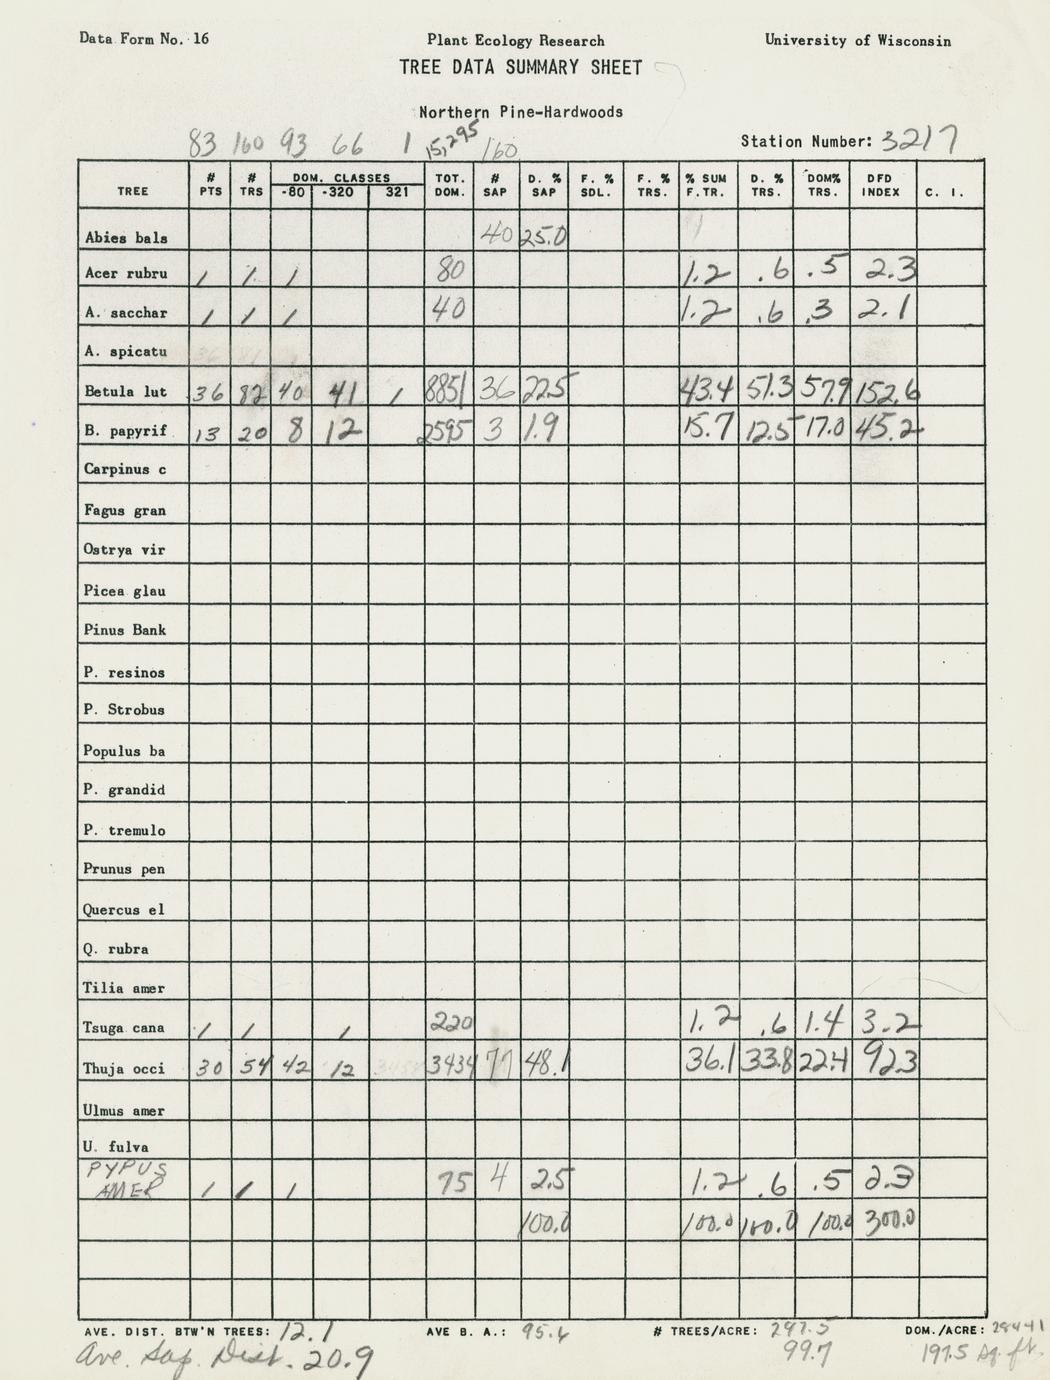 Data Form No. 16 Plant Ecology Research University of Wisconsin
TREE DATA SUMMARY SHEET
Northern Pine-Hardwoods
83 160 93 66 1 15,295 160 Station Number: 3217
TREE # PTS # TRS DOM. CLASSES -80 -320 321 TOT. DOM. # SAP D. % SAP F. % SDL. F. % TRS. % SUM F.TR. D. % TRS. DOM% TRS. DFD INDEX C. I.
Abies bals 40 25.0
Acer rubru 1 1 1 80 1.2 .6 .5 2.3
A. sacchar 1 1 1 40 1.2 .6 .3 2.1
A. spicatu
Betula lut 36 82 40 41 1 8851 36 22.5 43.4 51.3 57.9 152.6
B. papyrif 13 20 8 12 2595 3 1.9 15.7 12.5 17.0 45.2
Carpinus c
Fagus gran
Ostrya vir
Picea glau
Pinus Bank
P. resinos
P. Strobus
Populus ba
P. grandid
P. tremulo
Prunus pen
Quercus el
Q. rubra
Tilia amer
Tsuga cana 1 1 1 220 1.2 .6 1.4 3.2
Thuja occi 30 54 42 12 3434 77 48.1 36.1 33.8 22.4 92.3
Ulmus amer
U. fulva
PYPUS AMER 1 1 1 75 4 2.5 1.2 .6 .5 2.3
100.0 100.0 100.0 100.0 300.0
AVE. DIST. BTW'N TREES: 12.1 AVE B. A.: 95.6 # TREES/ACRE: 297.5 DOM./ACRE: 28441
Ave. Sap. Dist. 20.9 99.7 197.5 sq. ft.